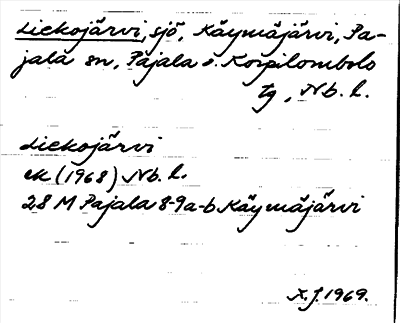 Liekojärvi, sjö, Käymäjärvi, Pa-
jala sn, Pajala o. Korpilombolo
tg, Nb. l.
Liekojärvi
ek (1968) Nb. l.
28 M Pajala 8-9a-b Käymäjärvi
X.j. 1969.